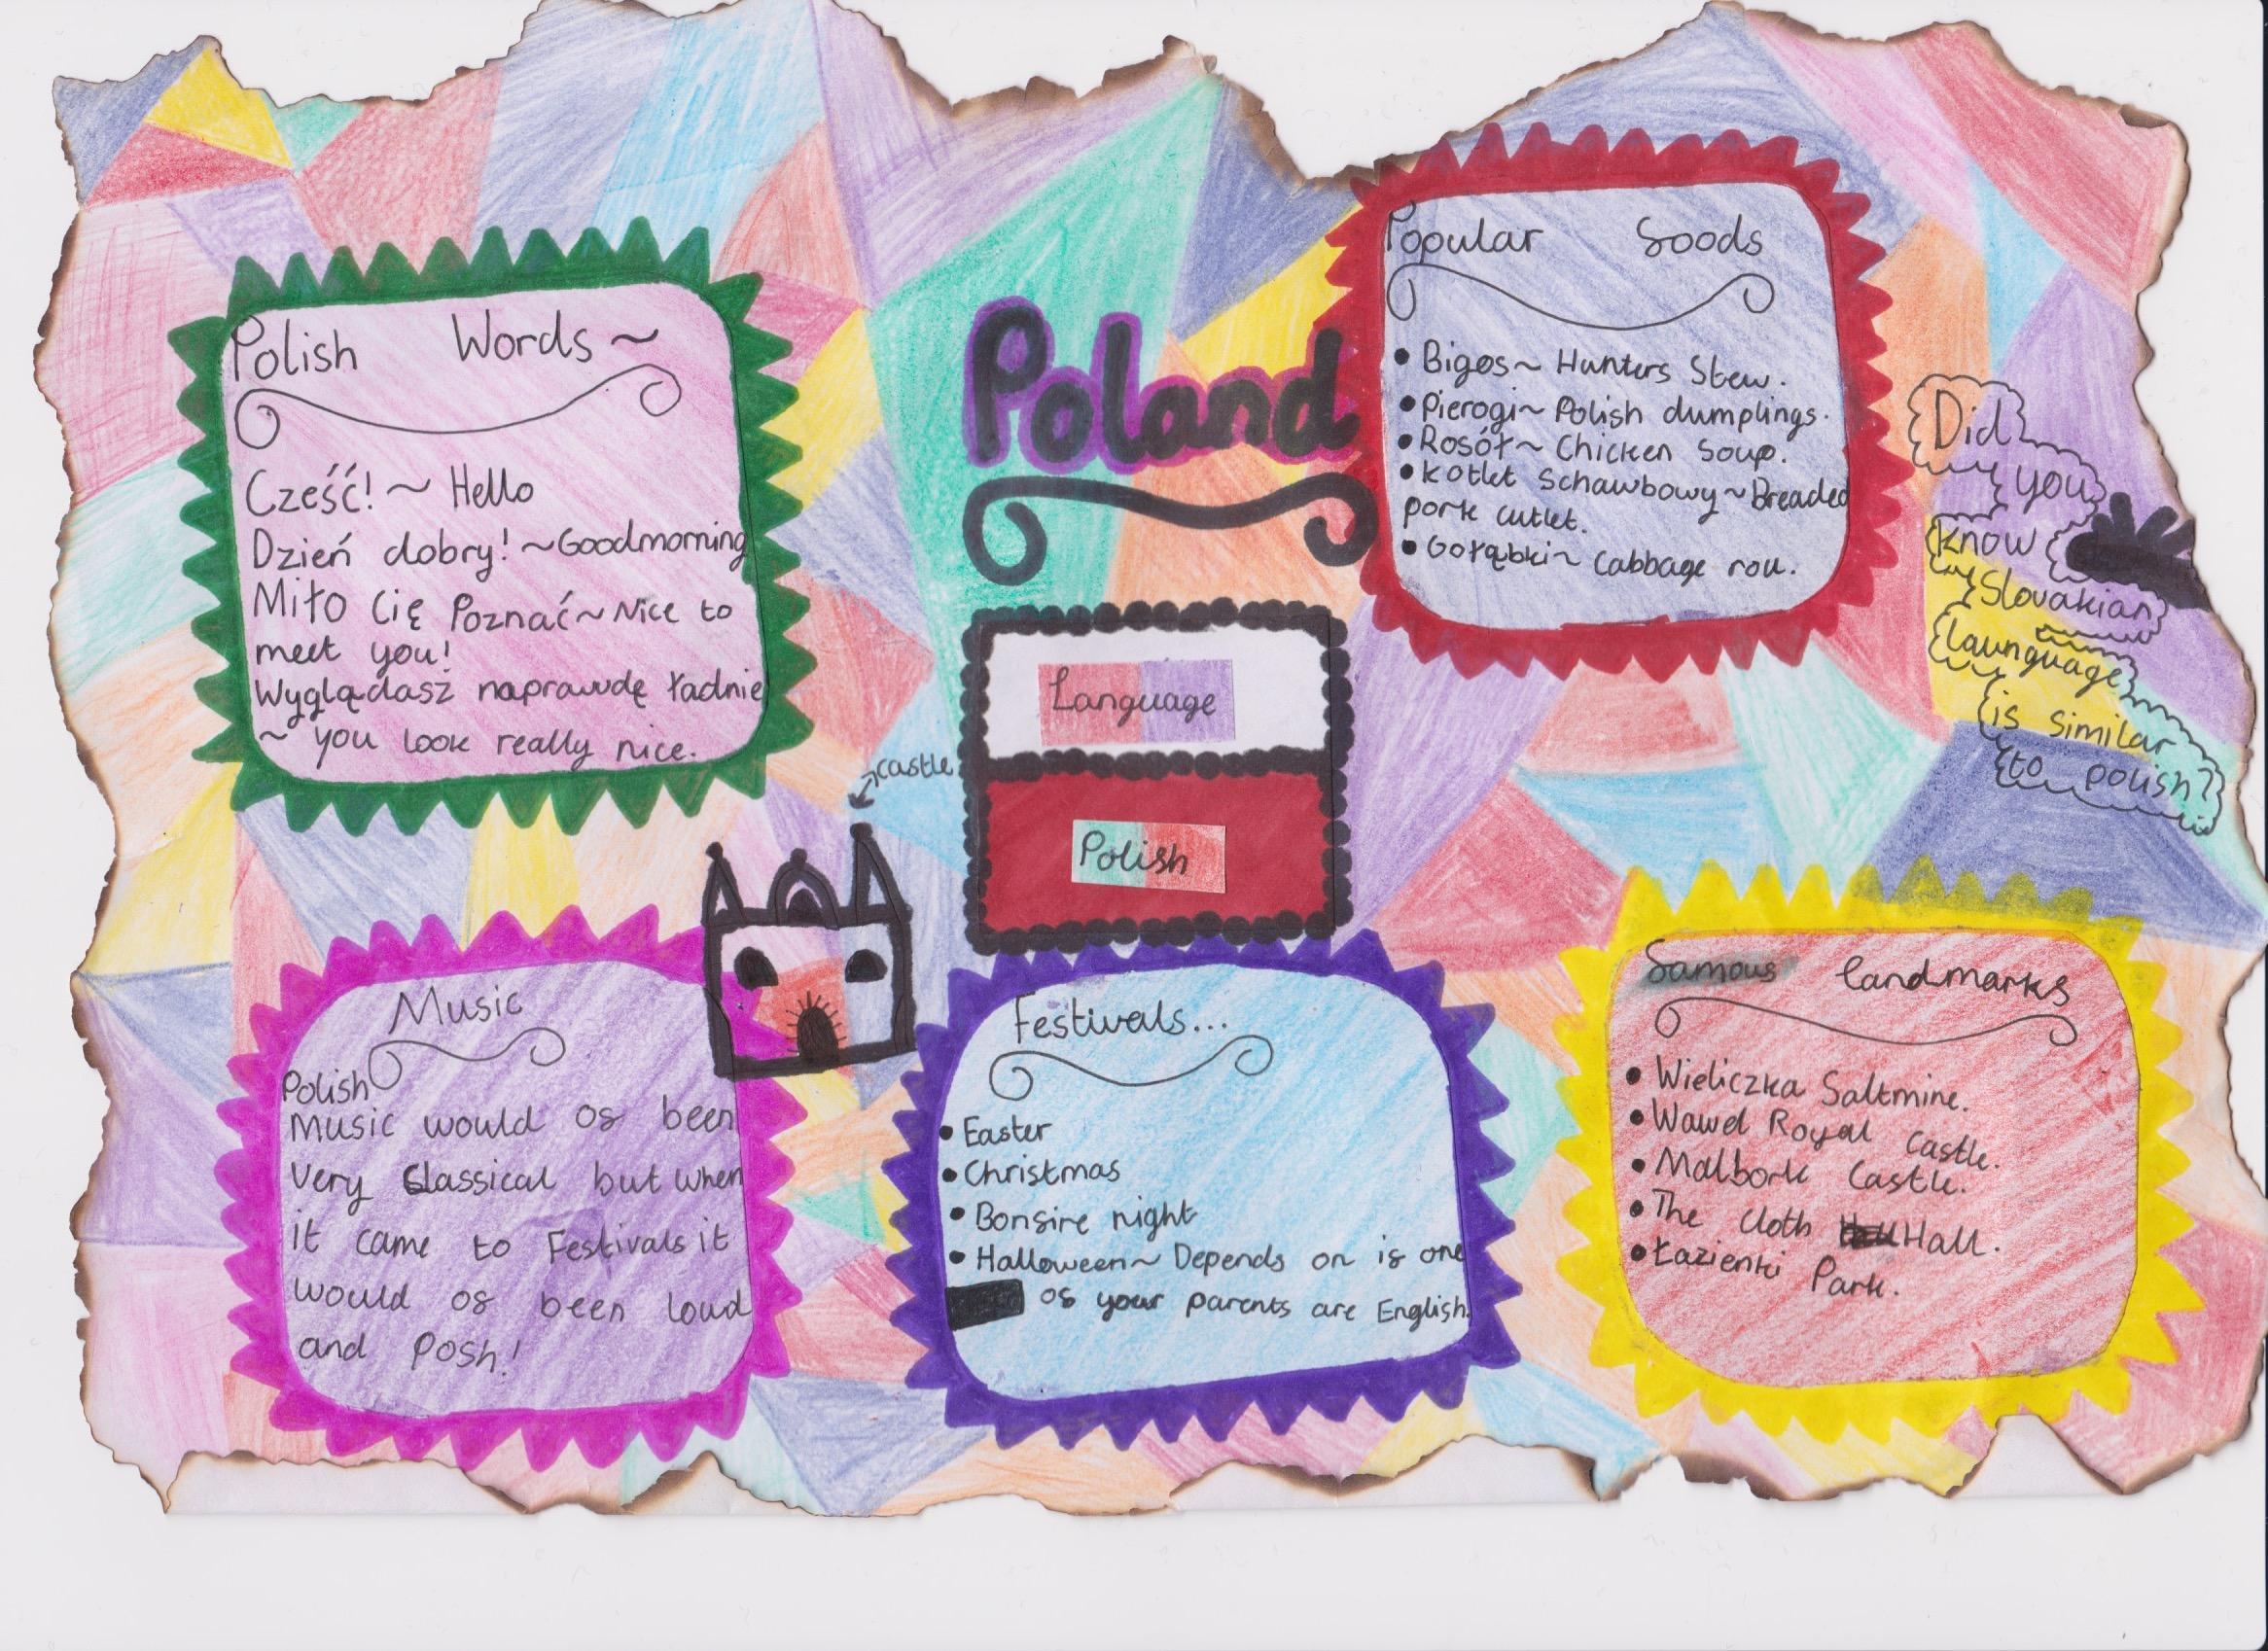 Poland
Language
Polish
Polish Words ~
Cześć! ~ Hello
Dzień dobry! ~ Goodmorning
Miło Cię Poznać ~ Nice to
meet you!
Wyglądasz naprawdę ładnie
~ you look really nice.
Popular foods
• Bigos ~ Hunters Stew.
• Pierogi ~ Polish dumplings.
• Rosół ~ Chicken Soup.
• Kotlet Schawbowy ~ Breaded
pork cutlet.
• Gołąbki ~ Cabbage roll.
Did
you
know
Slovakian
launguage
is similar
to polish?
castle
Music
Polish
Music would of been
very Classical but when
it came to Festivals it
would of been loud
and Posh!
Festivals...
• Easter
• Christmas
• Bonfire night
• Halloween ~ Depends on is one
of your parents are English.
famous landmarks
• Wieliczka Saltmine.
• Wawel Royal Castle.
• Malbork Castle.
• The Cloth Hall.
• Łazienki Park.